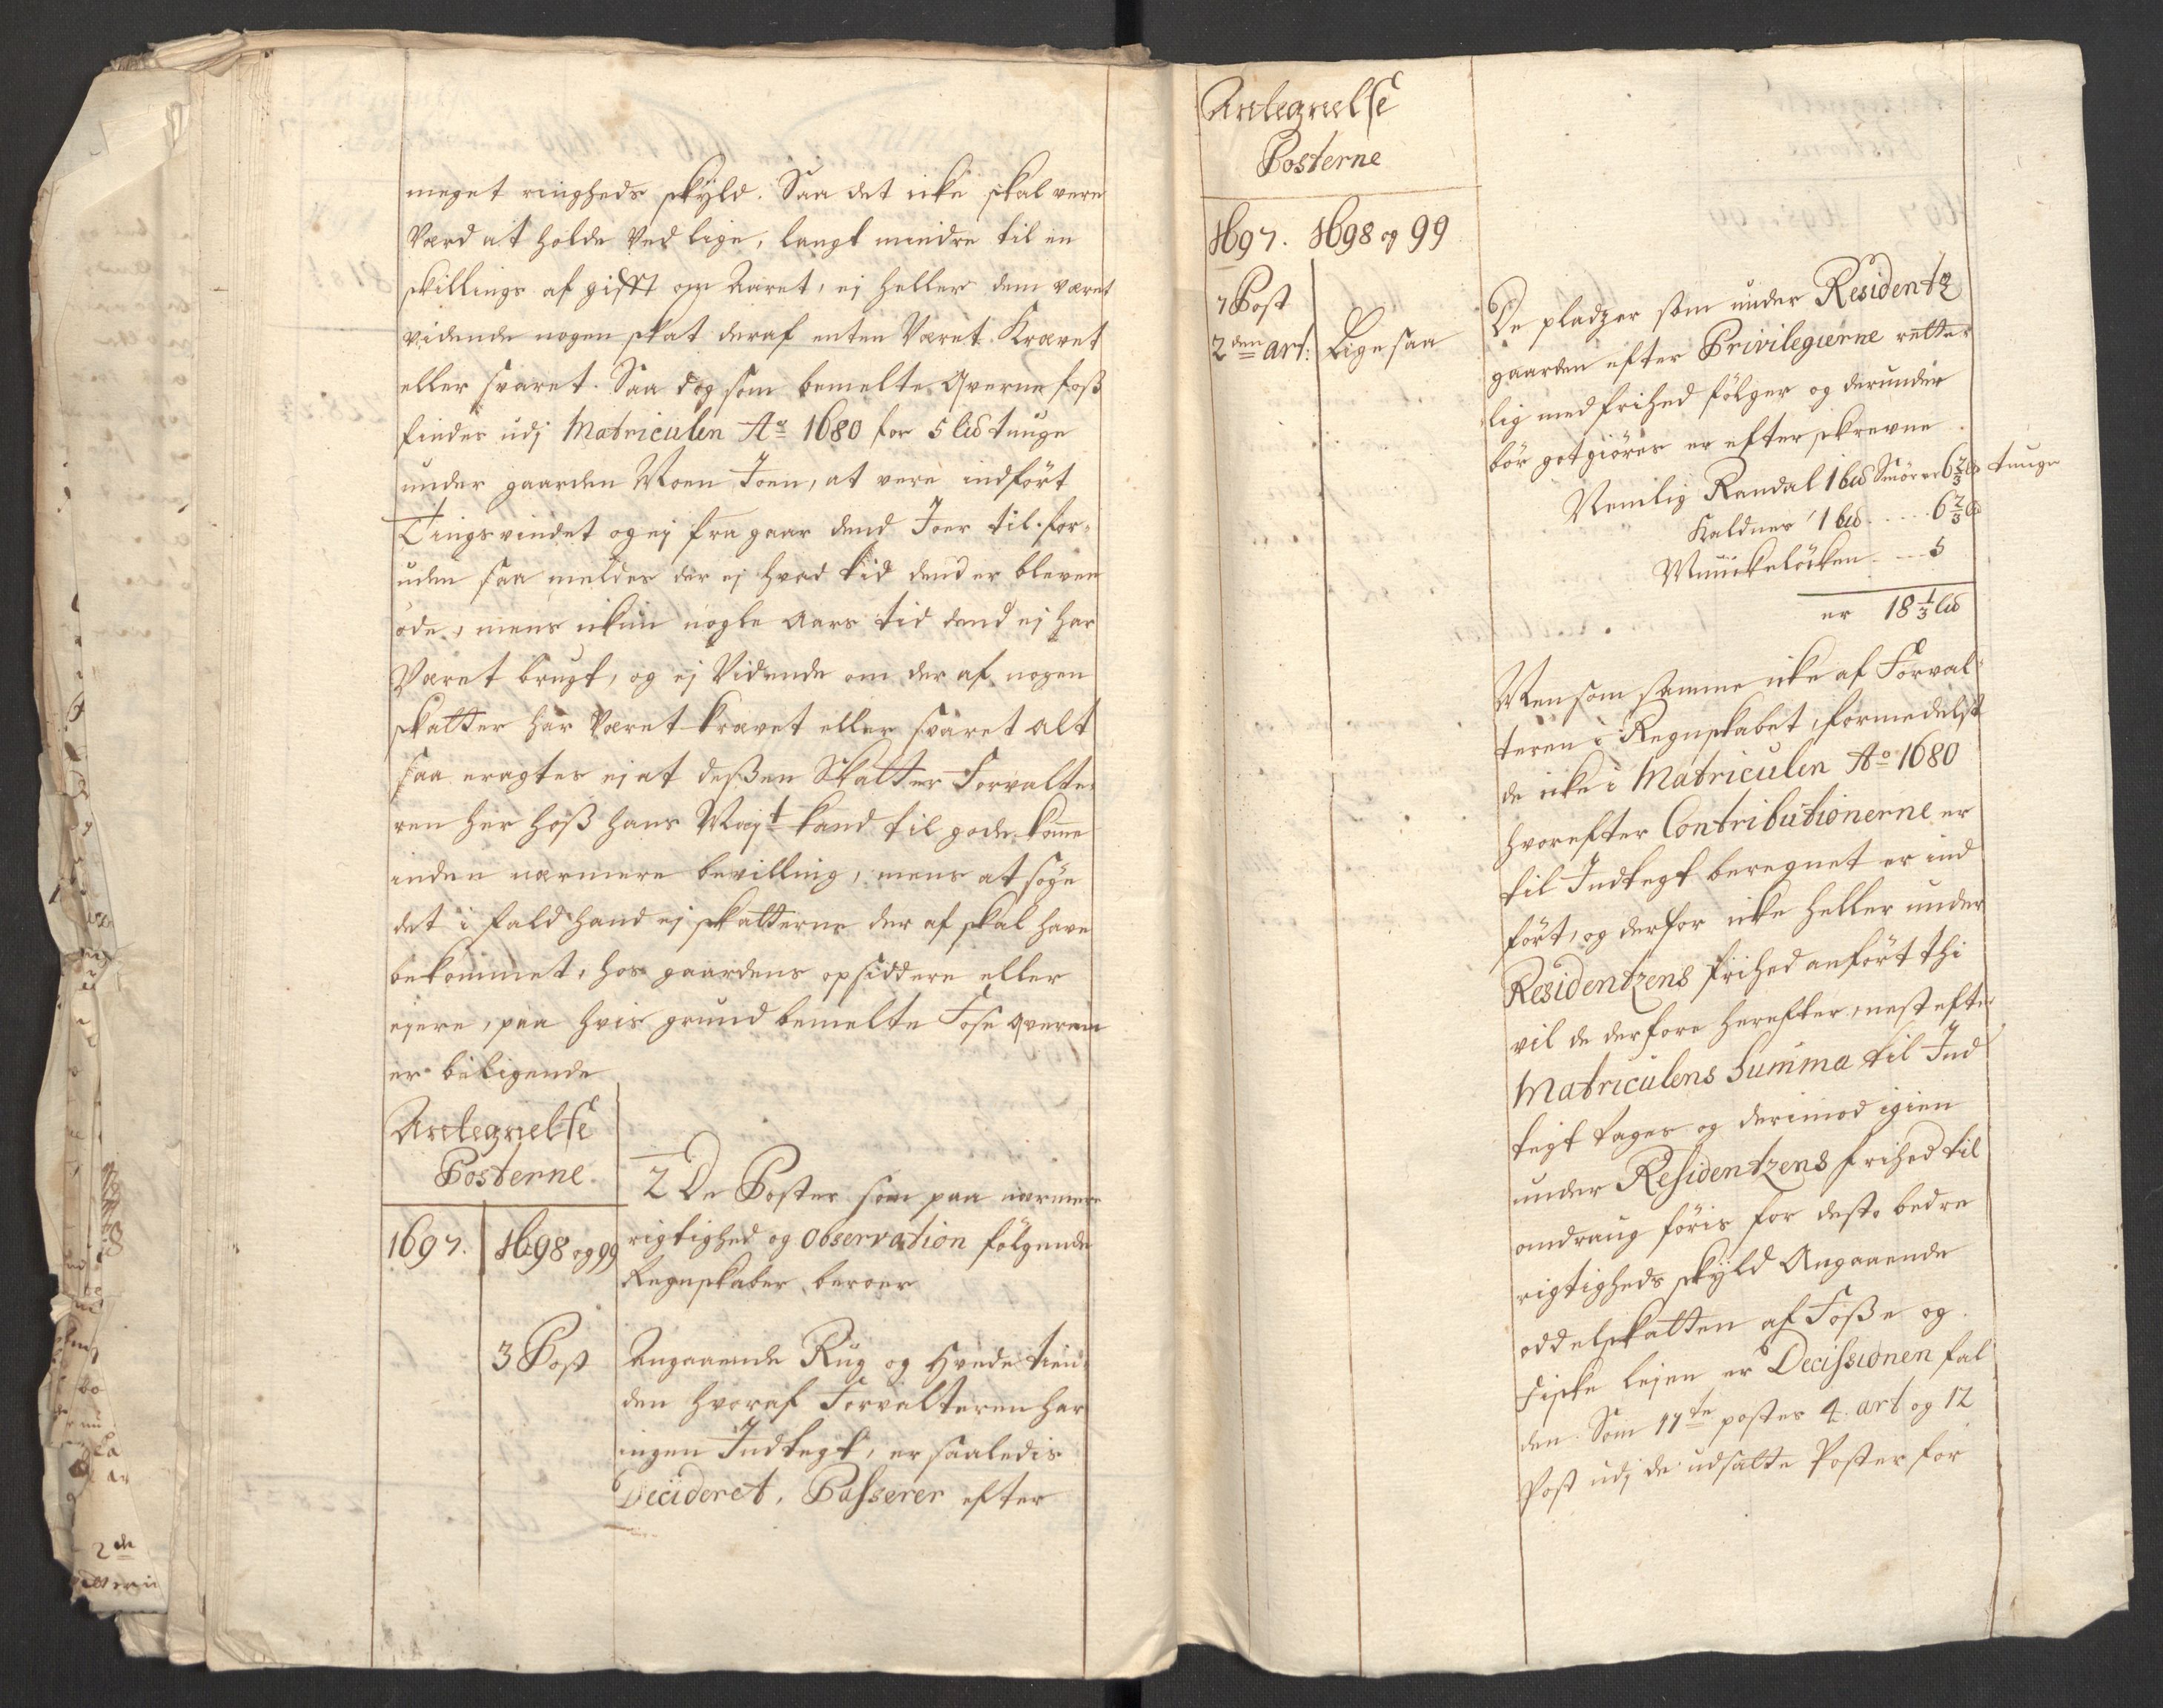 meget ringheds skyld. Saa det icke skal vere
Værd at holde ved lige, langt mindre til en
skillings afgifft om Aaret, ej heller dem været
vidende nogen skat deraf enten Været Krævet
eller svaret. Saa dog som bemelte Qverne foss
findes udj Matriculen Aº 1680 for 5 lld tunge
under gaarden Moen Joen, at vere indført
Tingsvindet og ej fra gaar dend Joer til. for-
uden saa meldes der ej hvad tid dend er bleven
øde, mens ickun nogle aars tid dend ej har
Været brugt, og ej Vidende om der af nogen
skatter har Været krævet eller svaret alt
saa eragtes ej at dessen Skatter Forvalte-
ren her hoss hans Mayt kand til gode komme
inden nærmere bevilling, mens at søge
det i fald hand ej skatterne der af skal have
bekommet, hos gaardens opsiddere eller
ejere, paa hvis grund bemelte Fose qverne
er beligende
Antegnelse
Posterne.
1697. 1698 og 99
2 De Poster som paa nærmere
rigtighed og Observation følgende
Regnskaber beroer
3 Post
Angaaende Rug og Hvede tien-
den hvoraf Forvalteren har
ingen Indtegt, er saaledis
Decideret, Passerer efter
Antegnelse
Posterne
1697. 1698 og 99
7 Post
2den art: Ligesaa
De pladzer som under Residentz
gaarden efter Privilegierne rette-
lig med frihed følger og derunder
bør gotgiøres er efterskrevne
Nemlig Randal 1 bld Smør er 6 2/3 ld tunge
Kaldnes 1 bld ..... 6 2/3 ld
Munckeløcken .... 5
er 18 1/3 lld
Men som samme icke af Forval-
teren i Regnskabet, formedelst
de icke i Matriculen Aº 1680
hvorefter Contributionerne er
til Indtegt beregnet er ind
ført, og derfor icke heller under
Residentzens frihed anført thi
vil de derfore herefter, nest efter
Matriculens Summa til Ind
tegt tages og derimod igien
under Residentzens frihed til
andraug føris for deste bedre
rigtigheds skyld Angaaende
oddelskatten af Fosse og
Fiske lejen er Decissionen fal
den. Som 17te postes 4: art og 12
Post udj de udsatte Poster for